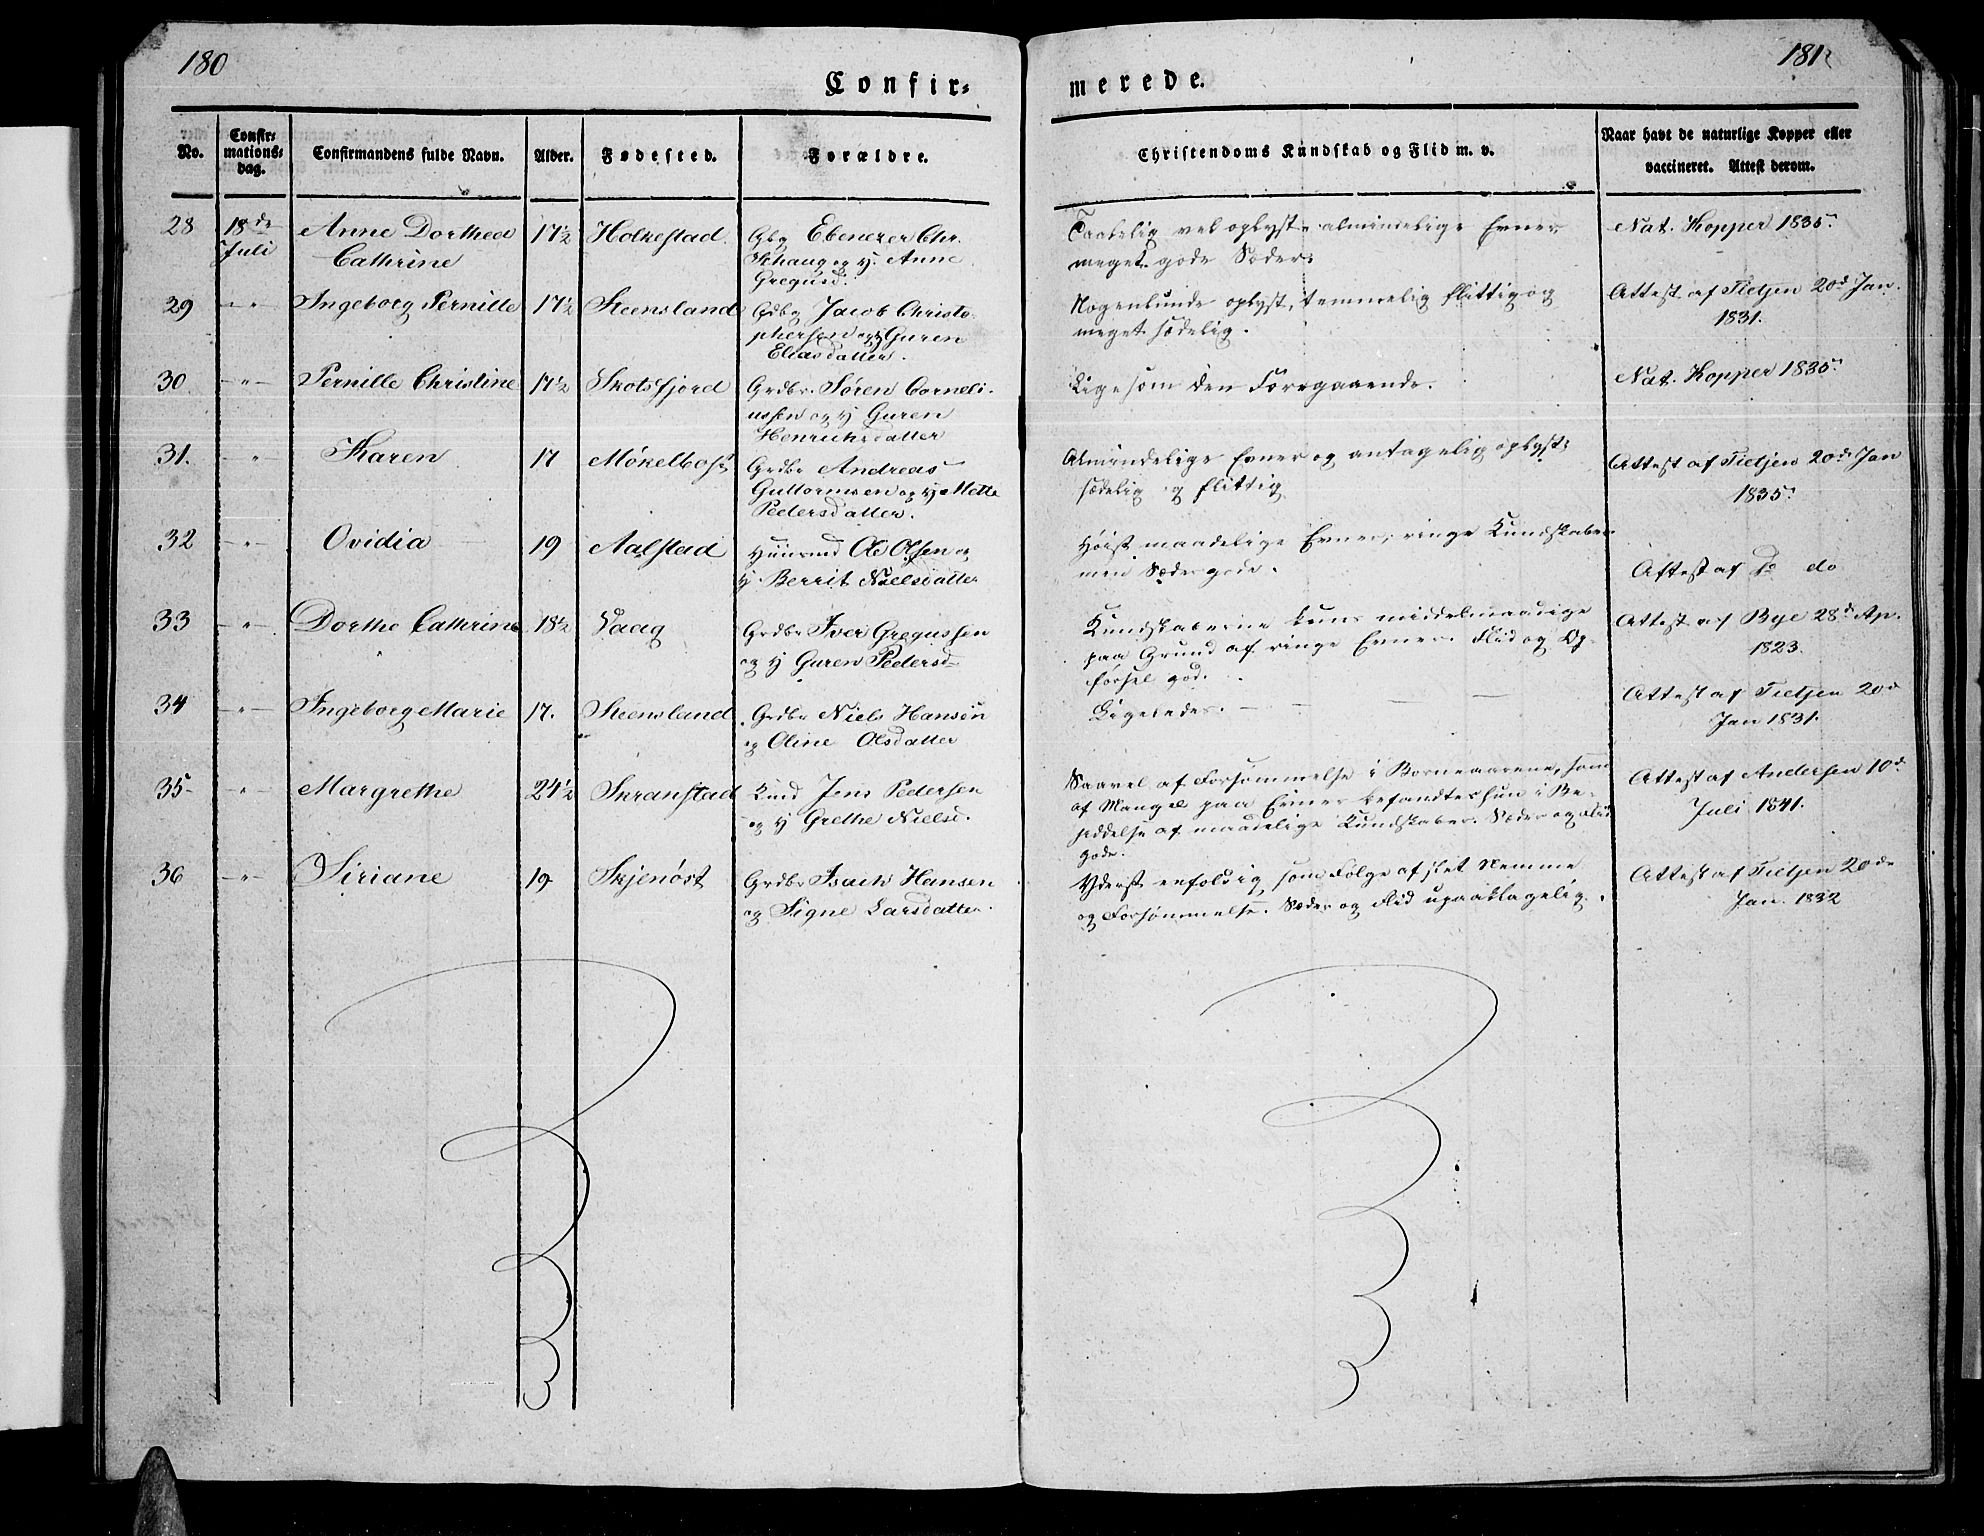 180
181
Confir-
merede.
No.
Confir-
mations-
dag.
Confirmandens fulde Navn.
Alder.
Fødested.
Forældre.
Christendoms Kundskab og Flid m. v.
Naar havt de naturlige Kopper eller
vaccineret. Attest derom.
28 18de Juli Anne Dorthea 17½ Holkestad. Gbr Ebenezer Chr.
Cathrine Schaug og H. Anne
Gregusd.
Taalelig vel oplyst, almindelige Evner,
meget gode Sæder.
Nat. Kopper 1835.
29 " " Ingeborg Pernille 17½ Steensland Gdbr Jacob Christo-
phersen og H Guren
Eliasdatter.
Nogenlunde oplyst, temmelig flittig og
meget sædelig.
Attest af Tietjen 20d Jan.
1831.
30 -"- Pernille Christine 17½ Skotsfjord Grdbr. Søren Corneli-
ussen og H Guren
Henrichsdatter
Ligesom den Foregaaende.
Nat. Kopper 1835.
31. " Karen 17 Grdbr Andreas
Guttormsen og H Mette
Pedersdatter.
Almindelige Evner og antagelig oplyst;
sædelig og flittig.
Attest af Tietjen 20de Jan
1835.
32 -"- Ovidia 19 Aalstad Huusmd Ole Olsen og
H. Berrit Nielsdatter
Høist maadelige Evner; ringe Kundskaber
men Sæder gode.
Attest af Do do
33 " Dorthe Cathrine 18½ Vaag Grdbr Iver Gregussen
og H Guren Pedersd
Kundskaberne kuns middelmaadige
paa Grund af ringe Evner. Flid og Op-
førsel god.
Attest af Bye 28de Ap.
1823.
34 -"- Ingeborg Marie 17. Steensland Grdbr Niels Hansen
og Oline Olsdatter
Ligeledes. — — —
Attest af Tietjen 20de
Jan 1831.
35 -"- Margrethe 24½ Skranstad Jens Pedersen
og H Grethe Nielsd.
Saavel af Forsømmelse i Barneaarene, som
af Mangel paa Evner befandtes hun i Be-
siddelse af maadelige Kundskaber. Sæder og Flid
gode.
Attest af Andersen 10de
Juli 1841.
36 -"- Siriane 19 Skjenøst Grdbr Isach Hansen
og Signe Larsdatter.
Yderst enfoldig, som Følge af slet Nemme
og Forsømmelse. Sæder og Flid upaaklagelig.
Attest af Tietjen 20de
Jan. 1832